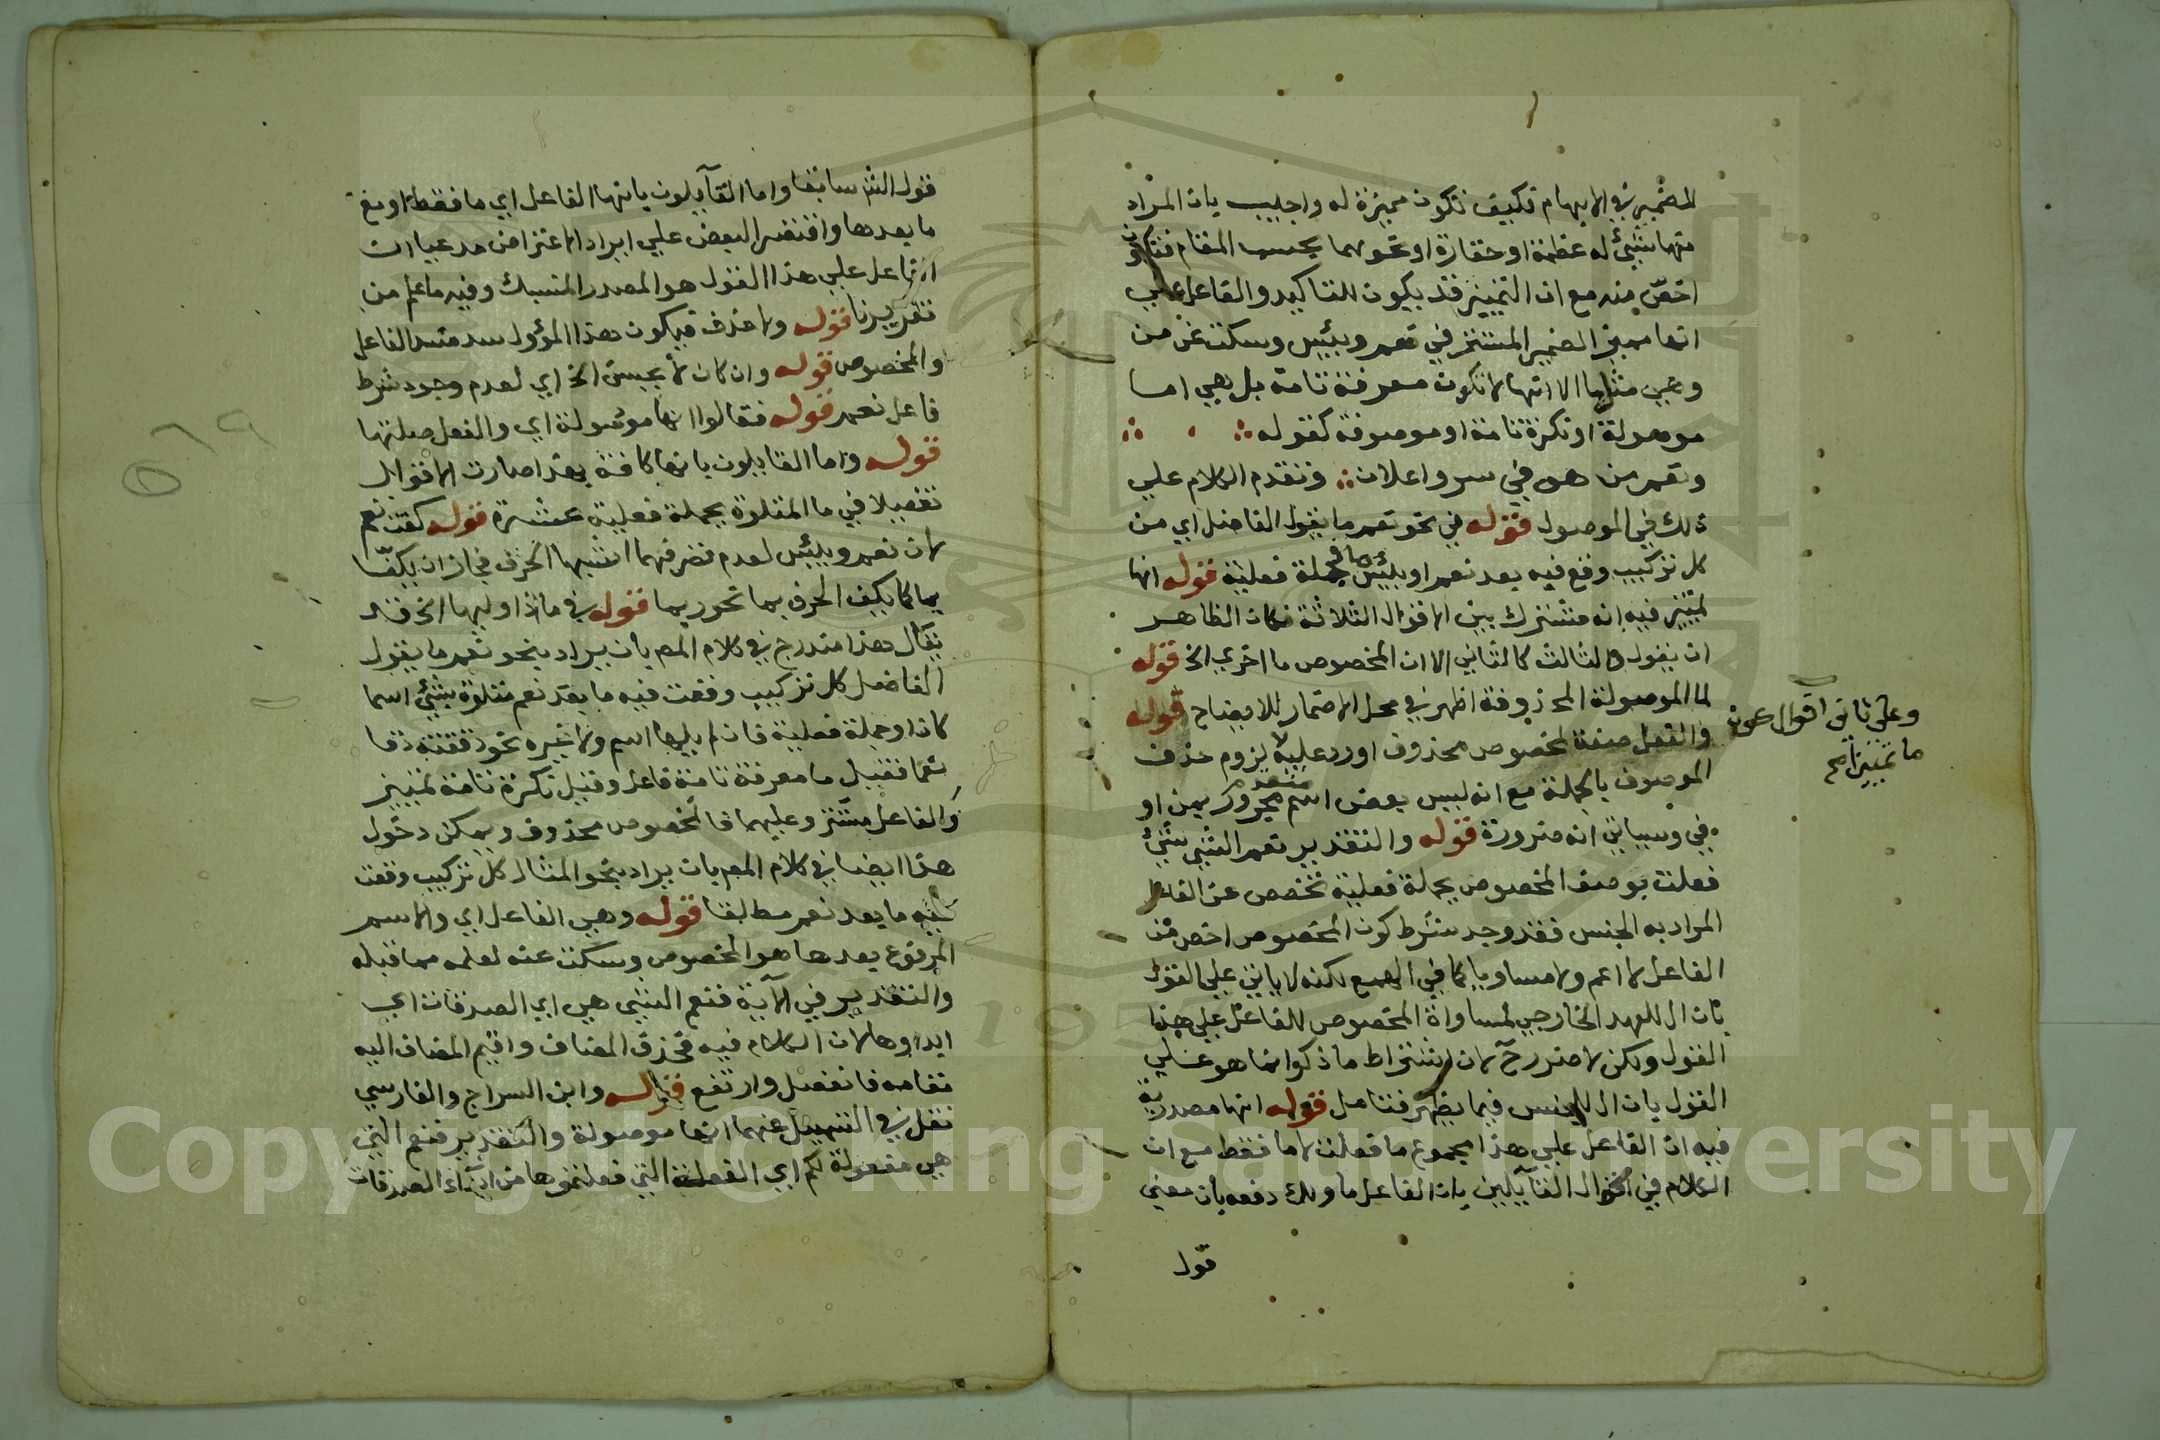 للضمير في الابهام فكيف تكون مميزة له واجيب بان المراد
منها شيئ له عظمة او حقارة او نحوهما بحسب المقام فتكون
اخص منه مع ان التمييز قد يكون للتاكيد والفاعل علي
انها مميز الضمير المستتر في نعم وبئس وسكت عن من
وهي مثلها الا انها لا تكون معرفة تامة بل هي اما
موصولة او نكرة تامة او موصوفة كقوله
ونعم من هو في سر واعلان وتقدم الكلام علي
ذلك في الموصول قوله في نحو نعم ما يقول الفاضل اي من
كل تركيب وقع فيه بعد نعم او بئس ما في جملة فعلية قوله انها
تمييز فيه انه مشترك بين الاقوال الثلاثة فكان الظاهر
ان يقول والثالث كالثاني الا ان المخصوص ما اخري الخ قوله
لما الموصولة المحذوفة اظهر في محل الاضمار للايضاح قوله
والفعل صفة لمخصوص محذوف اورد عليه لا يلزوم حذف
الموصوف بالجملة مع انه ليس بعض اسم متقدم مجرور بمن او
في وسياتي انه ضرورة قوله والتقدير نعم الشي شيئ
فعلت بوصف المخصوص بجملة فعلية تخصص عن الفاعل
المراد به الجنس فقد وجد شرط كون المخصوص اخص من
الفاعل لا اعم ولا مساويا كما في الهمع لكنه لا ياتي علي القول
بان ال للعهد الخارجي لمساواة المخصوص للفاعل علي هذا
القول ولكن لا ضرر لان اشتراط ما ذكر انما هو علي
القول بان ال للجنس فيما يظهر فتامل قوله انها مصدرية
فيه ان الفاعل علي هذا مجموع ما فعلت لا ما فقط مع ان
الكلام في اقوال القائلين بان الفاعل ما ولك دفعه بان معني
قول
وعلى ثاني اقوال عون
ما تمييزا صح
قول الش سابقا واما القائلون بانها الفاعل اي ما فقط او مع
ما بعدها واقتصر البعض علي ايراد الاعتراض مدعيا ان
الفاعل علي هذا القول هو المصدر المنسبك وفيه ما علم من
تقريرنا قوله ولا حذف فيكون هذا المؤول سد مسد الفاعل
والمخصوص قوله وان كان لا يحسن الخ اي لعدم وجود شرط
فاعل نعم قوله فقالوا انها موصولة اي والفعل صلتها
قوله واما القايلون بانها كافة بهذا صارت الاقوال
تفصيلا في ما المتلوة بجملة فعلية عشرة قوله كفت نعم
لان نعم وبئس لعدم تصرفهما اشبها الحرف فجاز ان يكفا
بما كما يكف الحرف بما نحو ربما قوله في ماذا وليها الخ قد
يقال هذا مندرج في كلام المص بان يراد بنحو نعم ما يقول
الفاضل كل تركيب وقعت فيه ما بعد نعم متلوة بشيئ اسما
كان او جملة فعلية فان لم يليها اسم ولا غيره نحو دققته دقا
نعما فقيل ما معرفة تامة فاعل وقيل نكرة تامة تمييز
والفاعل مستتر وعليهما فالمخصوص محذوف ويمكن دخول
هذا ايضا في كلام المص بان يراد بنحو المثال كل تركيب وقعت
فيه ما بعد نعم مطلقا قوله وهي الفاعل اي والاسم
المرفوع بعدها هو المخصوص وسكت عنه لعلمه مما قبله
والتقدير في الآية فنعم الشي هي اي الصدقات اي
ابداوها لان الكلام فيه فحذف المضاف واقيم المضاف اليه
مقامه فانفصل وارتفع قوله وابن السراج والفارسي
نقل في التسهيل عنهما انها موصولة والتقدير فنعم التي
هي مفعولة لكم اي الفعلة التي فعلتموها من ابداء الصدقات